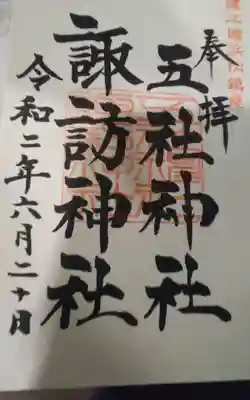 奉拝
五社神社
諏訪神社
令和二年六月二十日